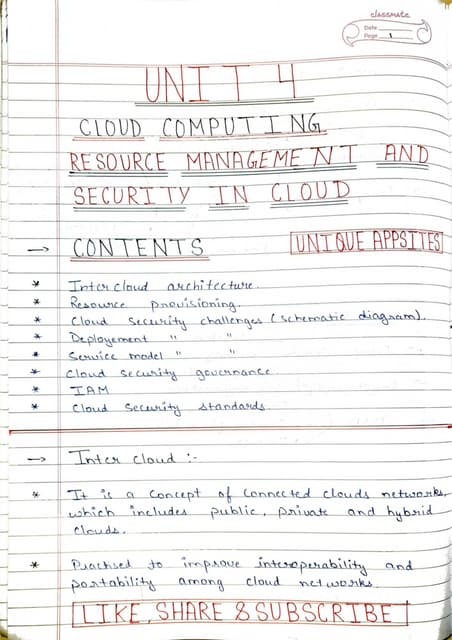 classmate
Date
Page 1
UNIT 4
CLOUD COMPUTING
RESOURCE MANAGEMENT AND
SECURITY IN CLOUD
→ CONTENTS
UNIQUE APPSITES
* Inter cloud architecture.
* Resource provisioning.
* Cloud security challenges (schematic diagram).
* Deployement " "
* Service model " "
* Cloud security governance
* IAM
* Cloud security standards.
→ Inter cloud :-
* It is a concept of connected clouds networks,
which includes public, private and hybrid
clouds.
* to improve interoperability and
portability among cloud networks.
LIKE, SHARE & SUBSCRIBE